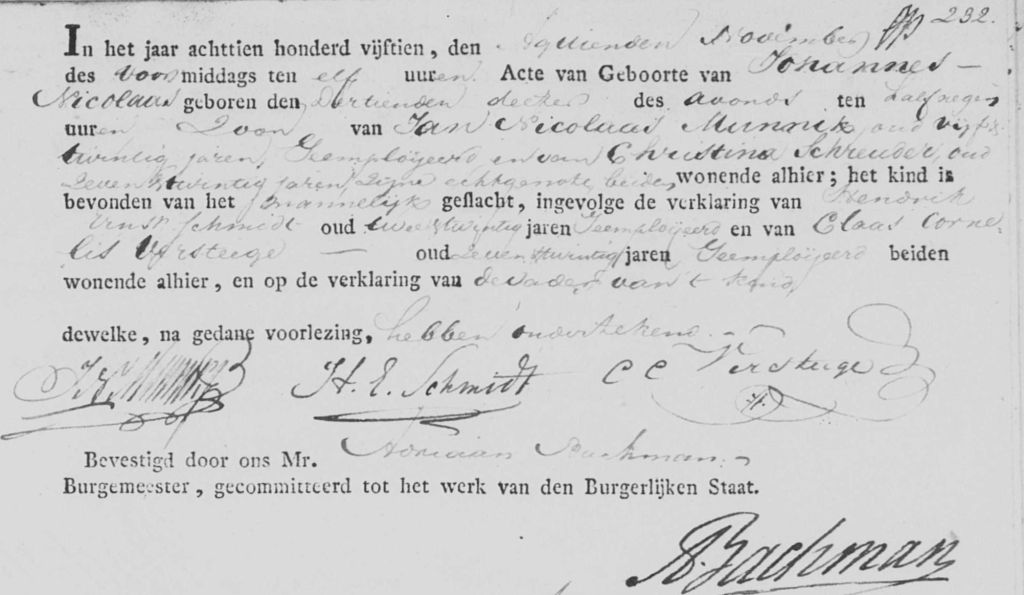 232.
In het jaar achttien honderd vijftien, den November
des voormiddags ten elf uuren. Acte van Geboorte van Johannes —
Nicolaas geboren den dertienden dezer des avonds ten half negen
uuren Zoon van Jan Nicolaas Munnik, oud vijf &
twintig jaren, Geemploÿeerd en van Christina Schreuder, oud
Zeven & twintig jaren, zijne echtgenote, beiden wonende alhier; het kind is
bevonden van het mannelijk geslacht, ingevolge de verklaring van Hendrik
Ernst Schmidt oud twee & twintig jaren Geemploÿeerd en van Claas Corne-
lis Versteege — oud zeven & twintig jaren Geemploÿeerd beiden
wonende alhier, en op de verklaring van de vader van 't kind,
dewelke, na gedane voorlezing, hebben ondertekend. —
H. E. Schmidt C C Versteege
Bevestigd door ons Mr. Adriaan Backman. —
Burgemeester, gecommitteerd tot het werk van den Burgerlijken Staat.
A. Bachman